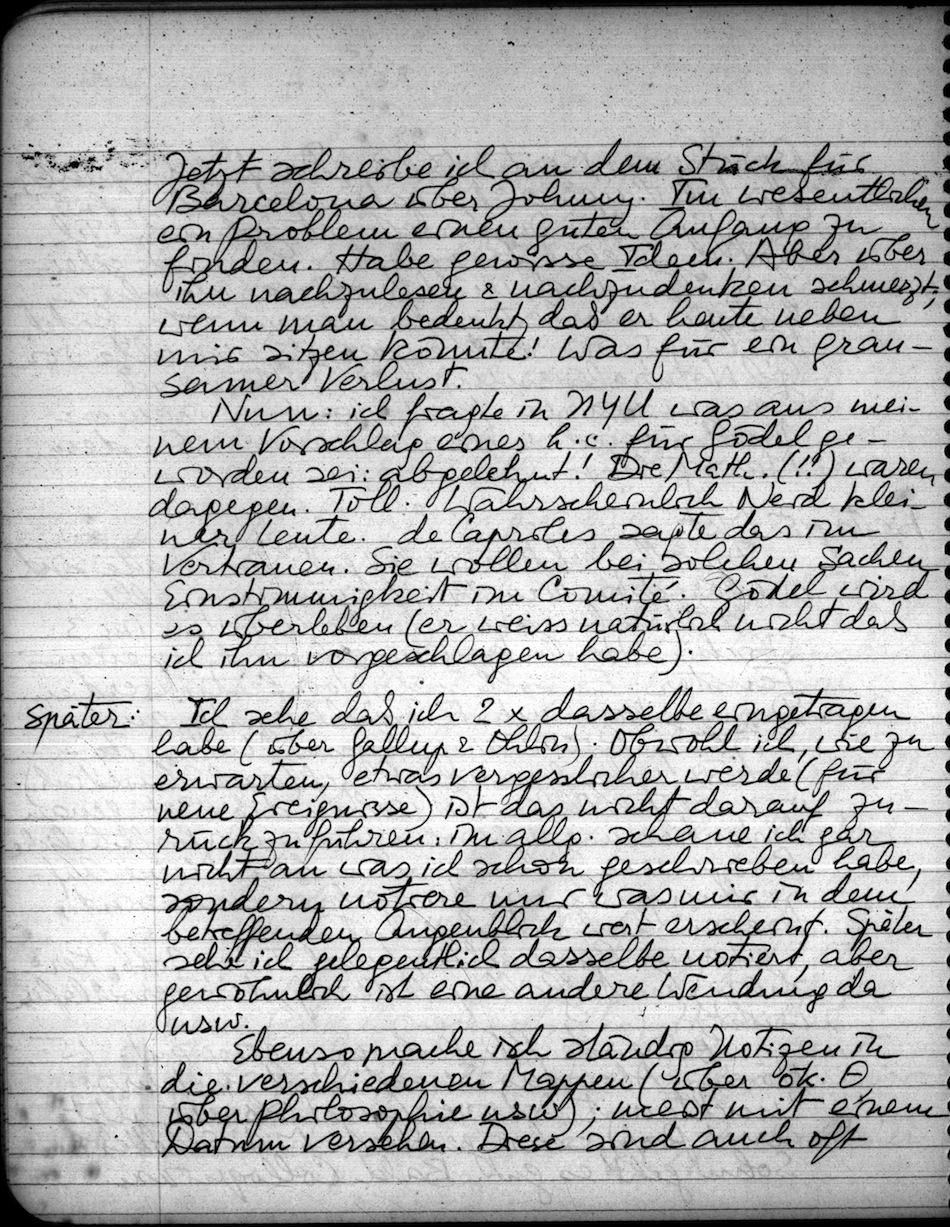 Jetzt schreibe ich an dem Stück für
Barcelona über Johnny. Im wesentlichen
ein Problem einen guten Anfang zu
finden. Habe gewisse Ideen. Aber über
ihn nachzulesen & nachzudenken schmerzt,
wenn man bedenkt, daß er heute neben
mir sitzen könnte! Was für ein grau-
samer Verlust.
Nun: ich fragte in NYU was aus mei-
nem Vorschlag eines h.c. für Gödel ge-
worden sei: abgelehnt! Die Math. (!!) waren
dagegen. Toll. Wahrscheinlich Neid klei-
ner Leute. de Capriles sagte das im
Vertrauen. Sie wollen bei solchen Sachen
Einstimmigkeit im Comité. Gödel wird
es überleben (er weiss natürlich nicht daß
ich ihn vorgeschlagen habe).
Später: Ich sehe daß ich 2 x dasselbe eingetragen
habe (über Gallup & Ohlin). Obwohl ich, wie zu
erwarten, etwas vergesslicher werde (für
neue Ereignisse) ist das nicht darauf zu-
rückzuführen: im allg. schaue ich gar
nicht an was ich schon geschrieben habe,
sondern notiere nur was mir in dem
betreffenden Augenblick wert erscheint. Später
sehe ich gelegentlich dasselbe notiert, aber
gewöhnlich ist eine andere Wendung da
usw.
Ebenso mache ich ständig Notizen in
die verschiedenen Mappen (über ök. Θ,
über Philosophie usw); meist mit einem
Datum versehen. Diese sind auch oft